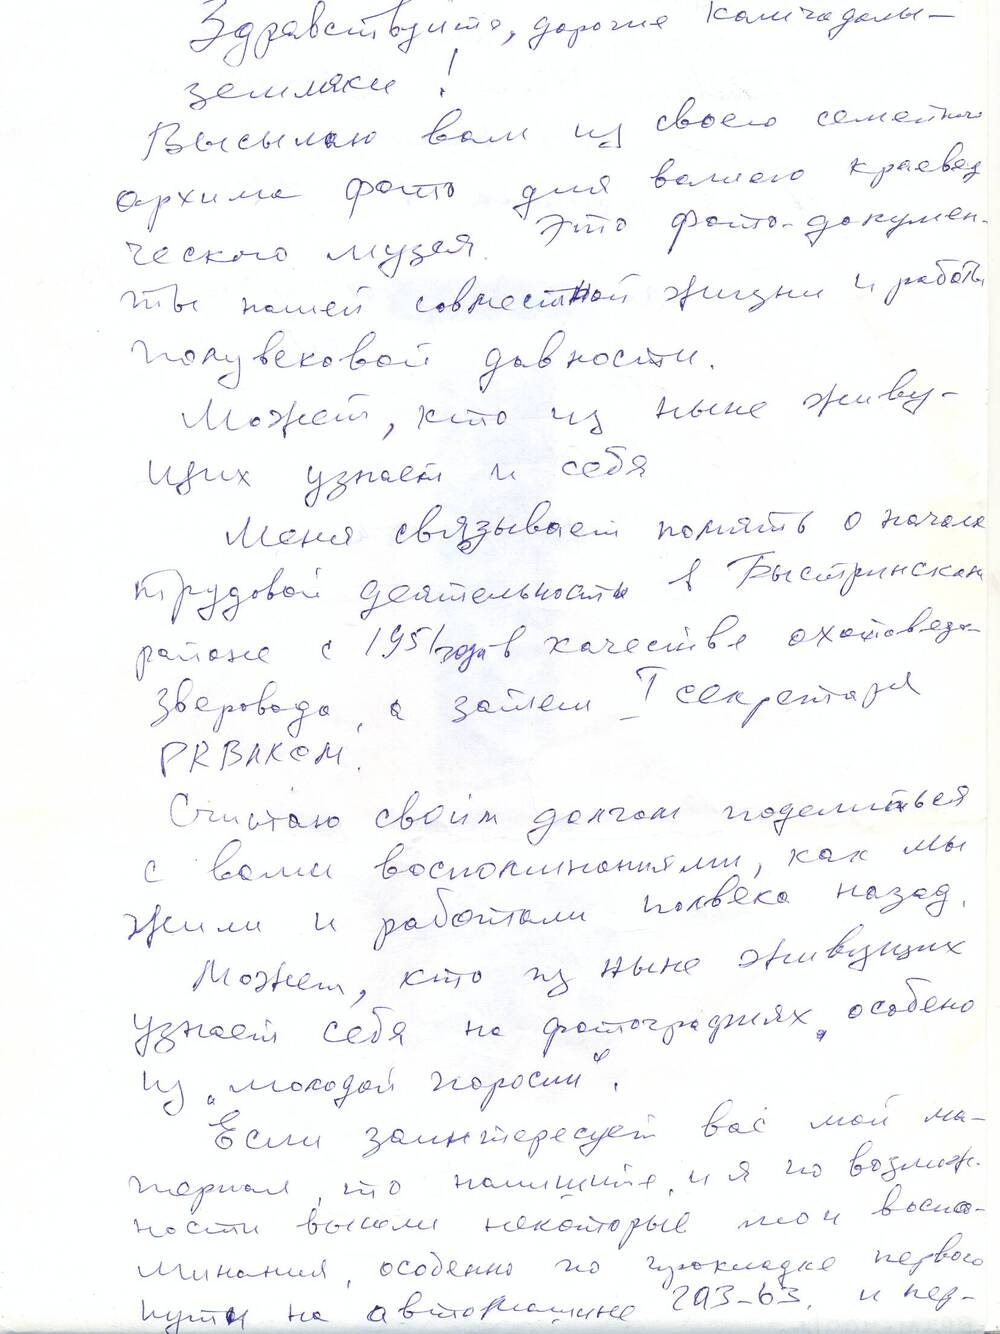 Здравствуйте, дорогие камчадалы-
земляки!
Высылаю вам из своего семейного
архива фото для вашего краевед
ческого музея. Это фото-докумен-
ты нашей совместной жизни и работы
полувековой давности.
Может, кто из ныне живу-
щих узнает и себя
Меня связывает память о начале
трудовой деятельности в Быстринском
районе с 1951 года в качестве охотоведа-
зверовода, а затем I секретаря
РК ВЛКСМ.
Считаю своим долгом поделиться
с вами воспоминаниями, как мы
жили и работали полвека назад.
Может, кто из ныне живущих
узнает себя на фотографиях, особено
из „молодой поросли“.
Если заинтересует вас мой ма-
териал, то напишите, и я по возмож-
ности вышли некоторые мои воспо-
минания, особенно по прокладке первого
пути на автомашине ГАЗ-63. и пер-